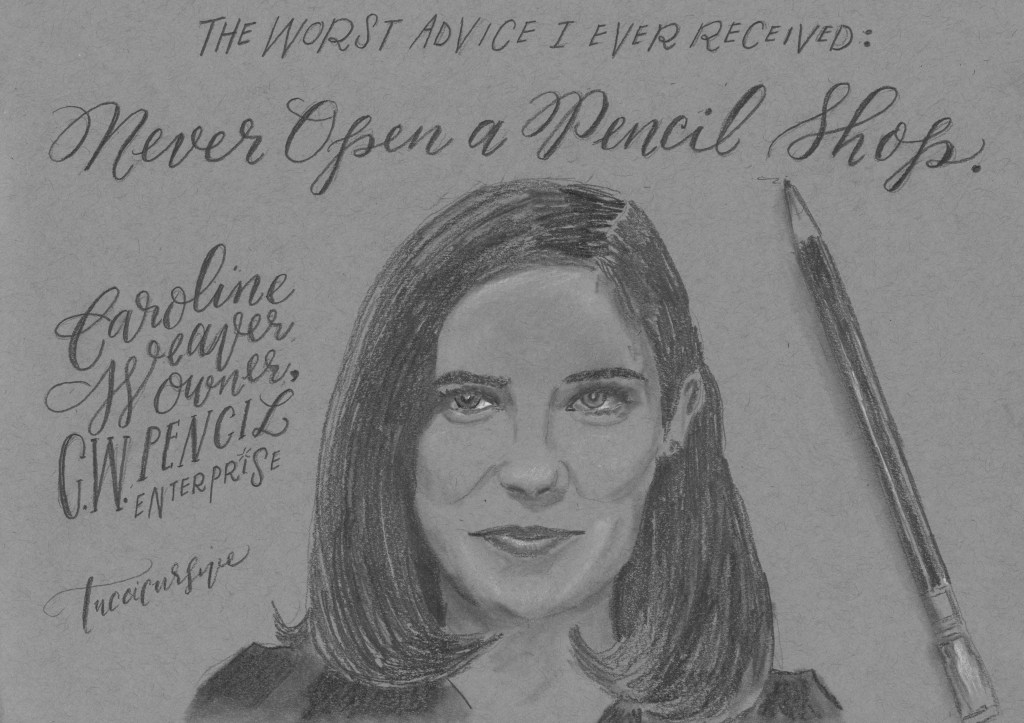 THE WORST ADVICE I EVER RECEIVED:
Never Open a Pencil Shop.
Caroline
Weaver
owner,
C.W. PENCIL
ENTERPRISE
tuccicursive